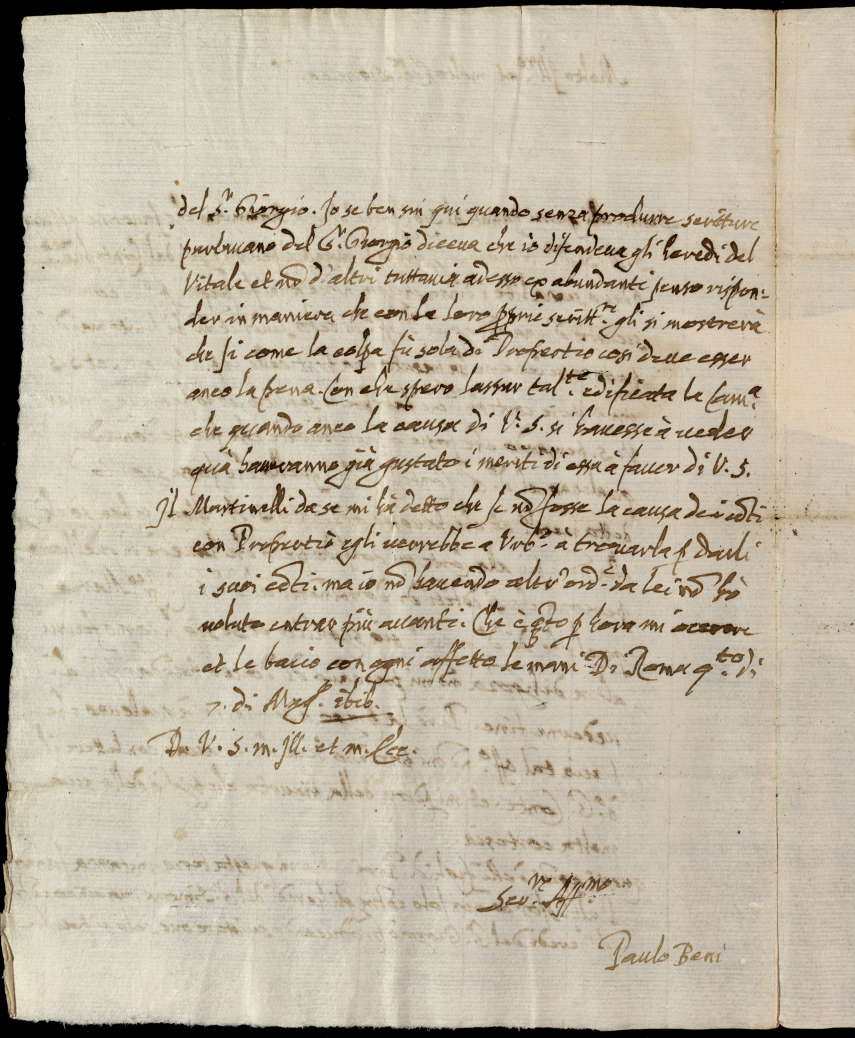 del S.r Giorgio. Io se ben sin qui quando senza produrre scritture
parlavano del S.r Giorgio diceva che io difendeva gli heredi del
Vitale et nõ d'altri tuttavia adesso ex abundanti penso rispon=
der in maniera che con le loro proprie scritt.re gli si mostrerà
che si come la colpa fù sola di Propertio così deve esser
anco la pena. Con che spero lassar tal.te edificata la Cam.a
che quando anco la causa di V. S. si havesse à veder
quà haveranno già gustato i meriti di essa à favor di V. S.
Il Martinelli da se mi hà detto che se nõ fosse la causa de i
con Propertio egli verrebbe a Urb.o à trovarla p darli
i suoi cõti. ma io nõ havendo altr'ord.e da lei nõ hò
voluto entrar più avanti. Che è q̃to p hora mi occorre
et le bacio con ogni affetto le mani Di Roma q.to di
7. di Mag.o 1616.
D. V. S. m. Ill. et m. Ecc.
Ser.re Aff.mo
Paulo Beni